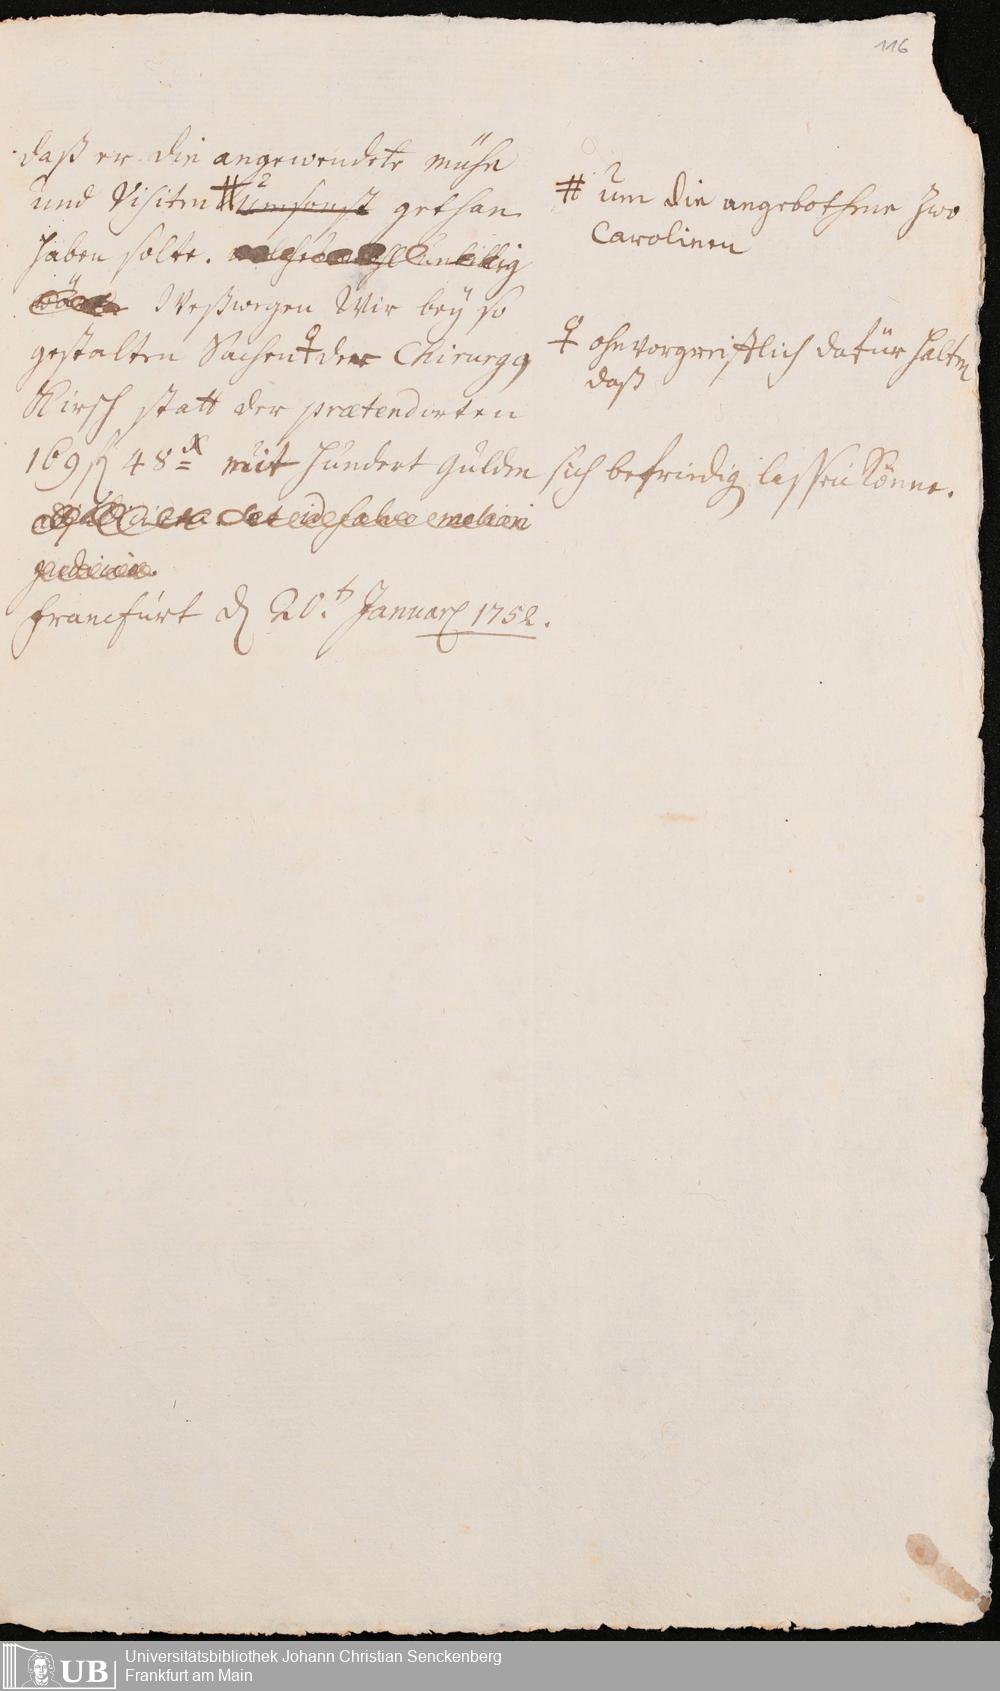 116
daß er die angewendete mühe
und Visiten # umsonst gethan
haben solte. unbillig
wäre Weßwegen Wir bey so
gestalten Sachen der Chirurgg
Hirsch statt der prætendirten
169 f 48 x mit hundert Gulden sich befriedig lassen könne.
salvo meliori
judicio.
Francfurt d 20.t Januar 1752.
# um die angebothene Zwo
Carolinen
ohnvorgreifflich dafür halten
daß
UB Universitätsbibliothek Johann Christian Senckenberg
Frankfurt am Main